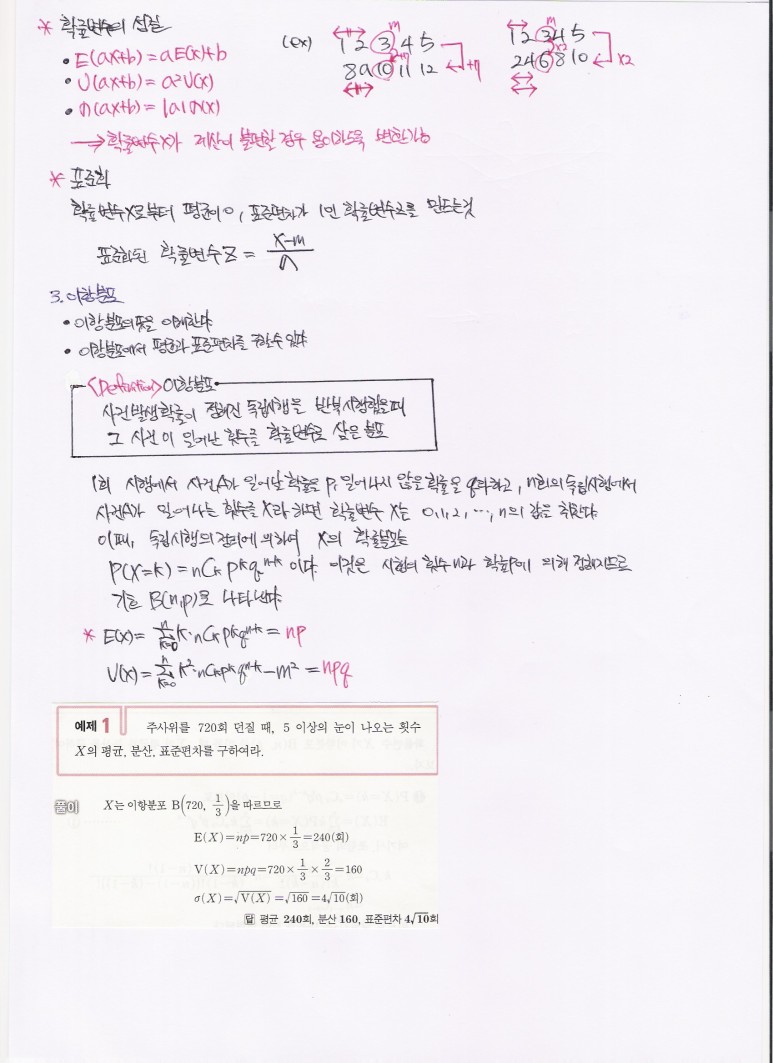 * 확률변수의 성질
• E(ax+b)=aE(x)+b
• V(ax+b)=a²V(x)
• σ(ax+b)=|a|σ(x)
→ 확률변수 X가 계산이 불편할 경우 용이하도록 변환가능
(ex) 1 2 3 4 5
m
8 9 10 11 12
+7
1 2 3 4 5
m
×2
2 4 6 8 10
×2
* 표준화
확률변수X로부터 평균이 0, 표준편차가 1인 확률변수Z를 만드는것
표준화된 확률변수 Z = (X-m)/σ
3. 이항분포
• 이항분포의 뜻을 이해한다
• 이항분포에서 평균과 표준편차를 구할수 있다
<Definition> 이항분포
사건발생확률이 정해진 독립시행을 반복시행했을때
그 사건이 일어난 횟수를 확률변수로 삼은 분포
1회 시행에서 사건A가 일어날 확률을 p, 일어나지 않을 확률을 q라하고, n회의 독립시행에서
사건A가 일어나는 횟수를 X라 하면 확률변수 X는 0, 1, 2, …, n의 값을 취한다
이때, 독립시행의 정리에 의하여 X의 확률분포는
P(X=k)=nCk p^k q^n-k 이다 이것은 시행의 횟수 n과 확률P에 의해 정해지므로
기호 B(n,p)로 나타낸다
* E(x)= n∑k=0 k·nCk p^k q^n-k = np
V(x)= n∑k=0 k²·nCk p^k q^n-k - m² = npq
예제 1 주사위를 720회 던질 때, 5 이상의 눈이 나오는 횟수
X의 평균, 분산, 표준편차를 구하여라.
풀이 X는 이항분포 B(720, 1/3)을 따르므로
E(X)=np=720×1/3=240(회)
V(X)=npq=720×1/3×2/3=160
σ(X)=√V(X)=√160=4√10(회)
답 평균 240회, 분산 160, 표준편차 4√10회